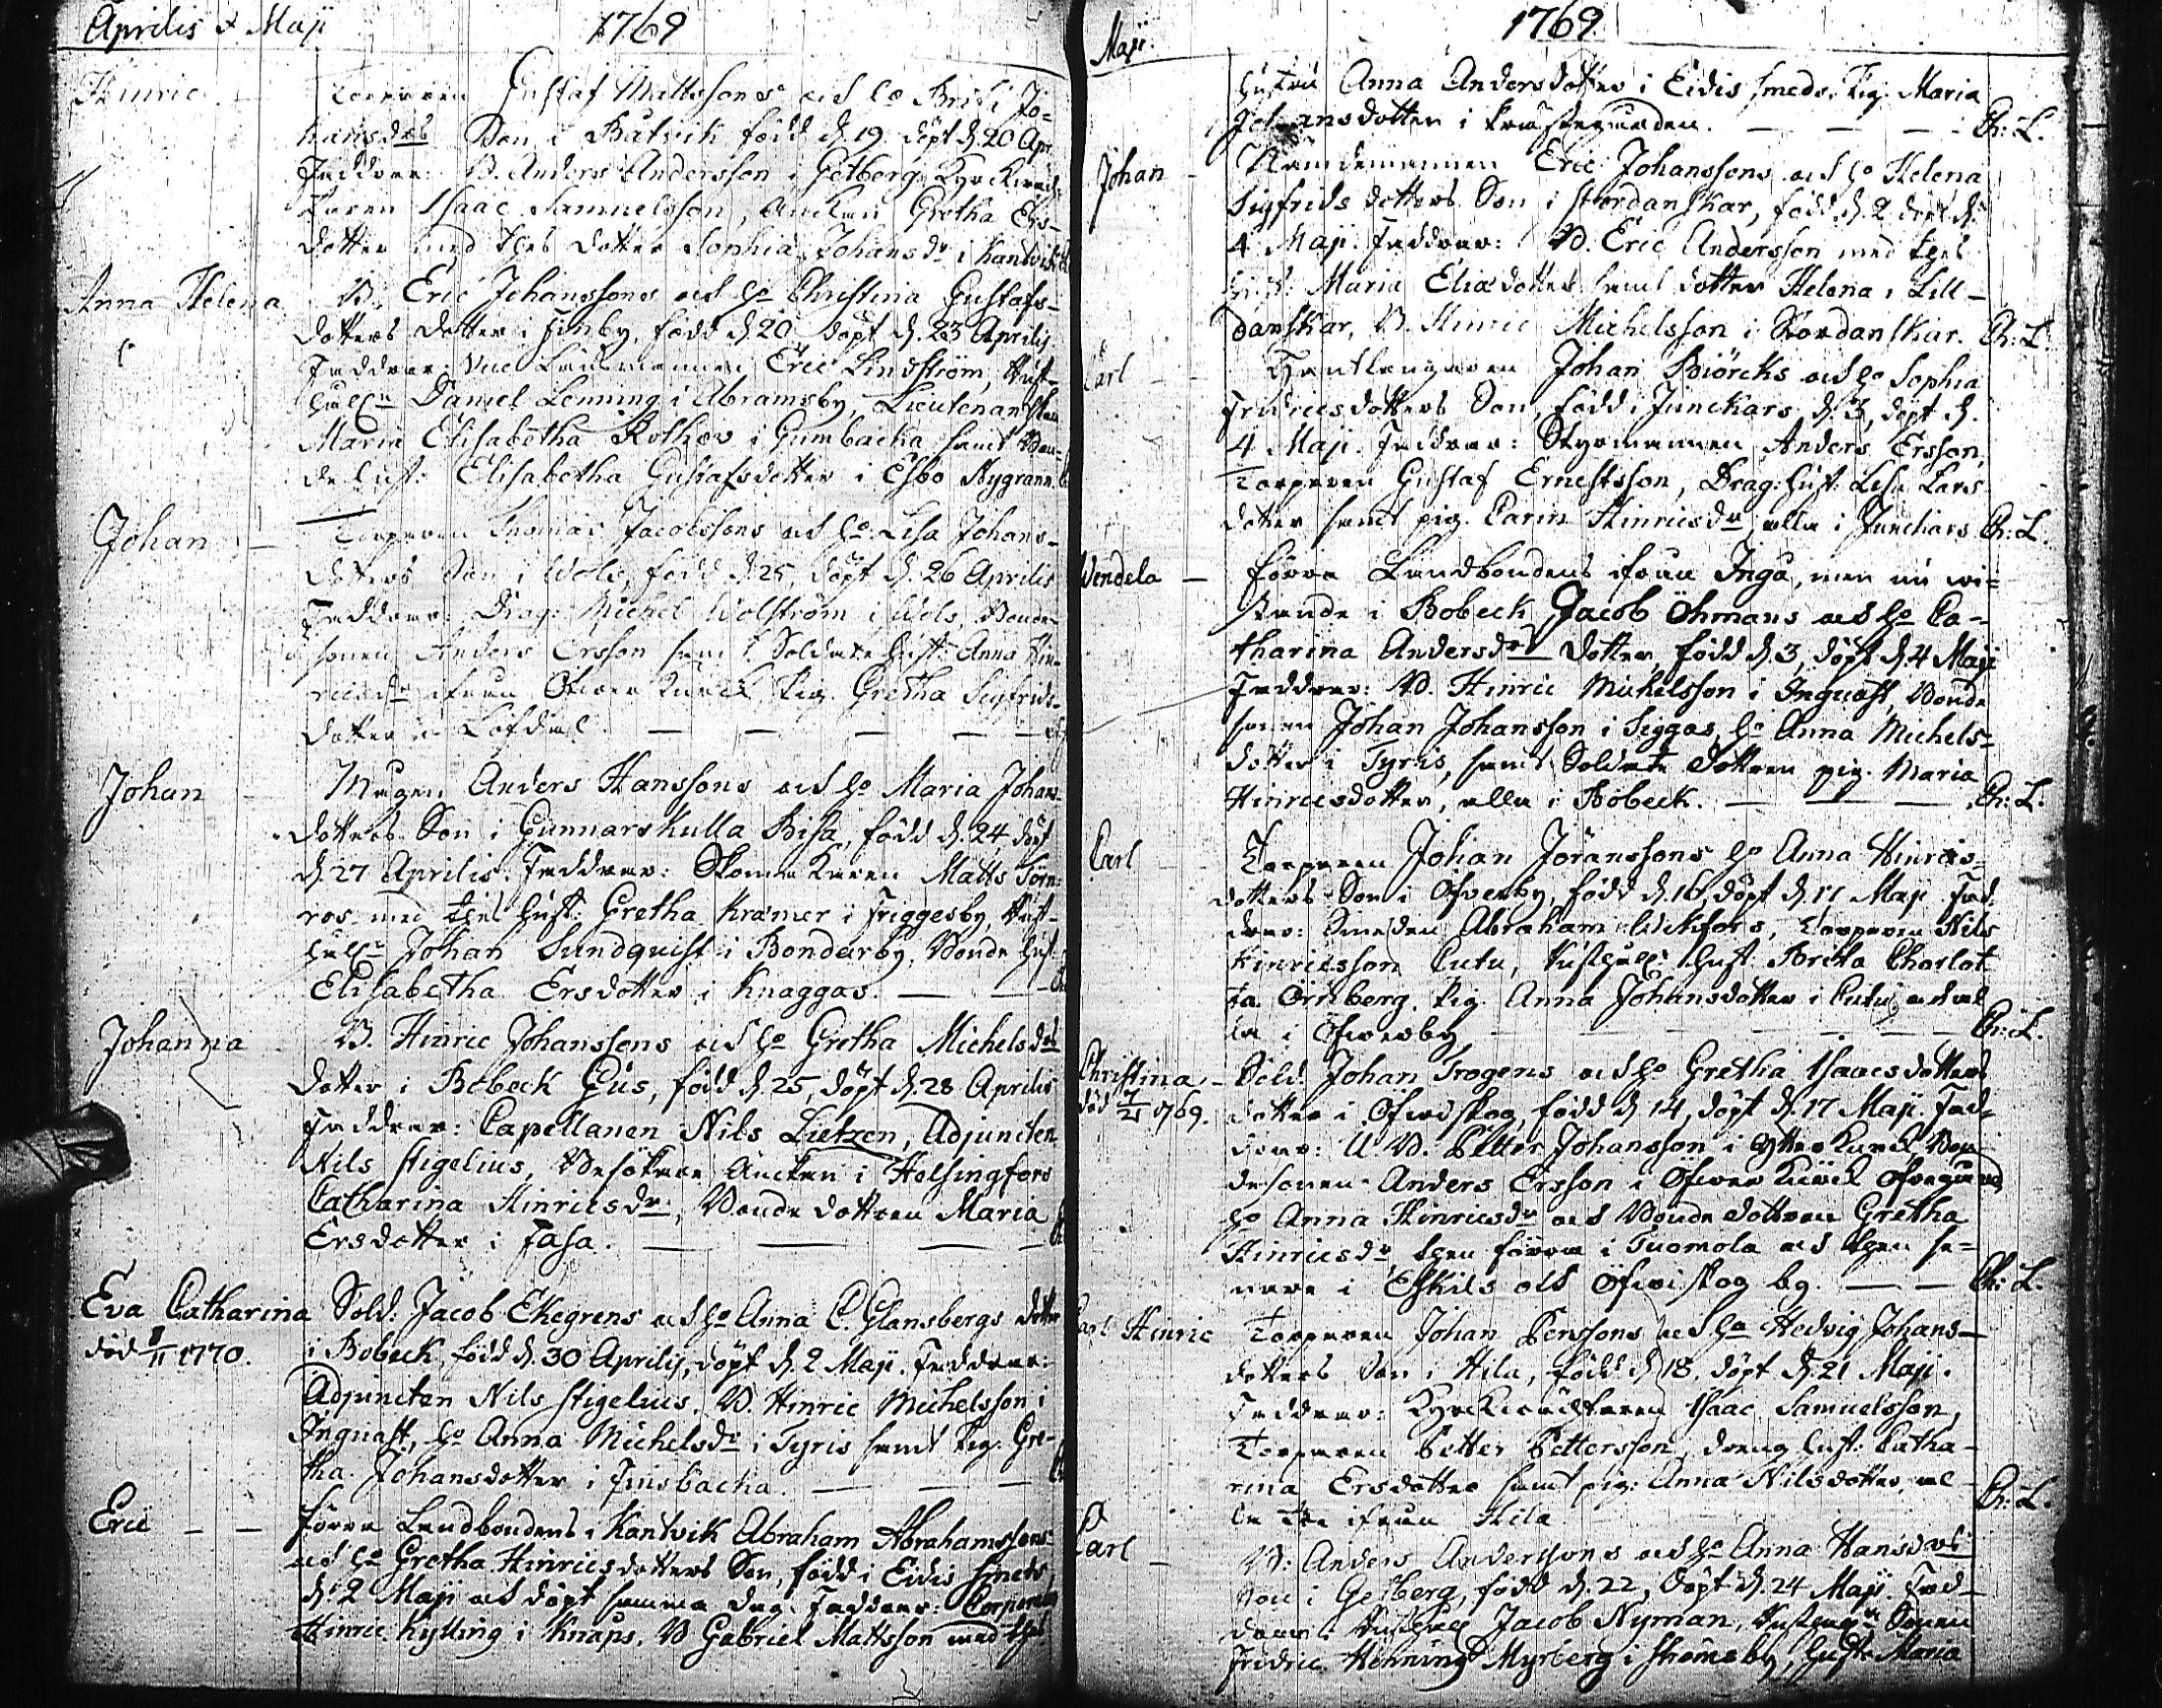 Aprilis & Maji 1769
Hinric Torparen Gustaf Mattssons och ho Brita Jo=
hansdrs Son i Båtvik född d. 19. döpt d. 20 Apr.
Faddrar: B. Anders Andersson i Getberg, Kyrckiväch-
taren Isaac Samuelsson, Änckan Gretha Ers-
dotter med thes dotter Sophia Johansdr i Kantvik
Anna Helena B. Eric Johanssons och ho Christina Gustafs-
dotters dotter i Finby, född d. 20 döpt d. 23 Aprilis.
Faddrar: Vice Länsmannen Eric Lindström, Rust-
hålln Daniel Lenning i Abramsby, Lieutenantskan
Maria Elisabetha Rothov i Gumbacka samt Bon-
de hust. Elisabetha Gustafsdotter i Esbo Nygrann.
Johan Torparen Thomas Jacobssons och ho Lisa Johans-
dotters Son i Wols, född d. 25 döpt d. 26 Aprilis
Faddrar: Drag: Michel Wolström i Wols, Bonde-
sonen Anders Ersson samt Soldate hust. Anna Hin-
ricsdr ifrån Öfver Kurck, Pig. Gretha Sigfrids-
dotter i Löfdal
Johan Anders Hanssons och ho Maria Johans-
dotters Son i Gunnarskulla Bisa, född d. 24, döpt
d. 27 Aprilis. Faddrar: Skomakaren Matts Törn-
ros med thes hust: Gretha Kramer i Friggesby, Rust-
hålln Johan Sundquist i Bondarby, Bonde hust:
Elisabetha Ersdotter i Knaggas.
Johanna B. Hinric Johanssons och ho Gretha Michelsdrs
dotter i Bobeck Gus, född d. 25, döpt d. 28 Aprilis
Faddrar: Capellanen Nils Lietzen, Adjuncten
Nils Stigelius, Besökare Änckan i Helsingfors
Catharina Hinricsdr, Bonde dottren Maria
Ersdotter i Fasa.
Eva Catharina Sold: Jacob Ekegrens och ho Anna C. Glansbergs dotter
död 8/11 1770. i Bobeck, född d. 30 Aprilis, döpt d. 2 Maji. Faddrar:
Adjuncten Nils Stigelius, B. Hinric Michelsson i
Ingvast, ho Anna Michelsdr i Tyris samt Pig. Gre-
tha Johansdotter i Finsbacka.
Eric förra Landbondens i Kantvik Abraham Abrahamssons
och ho Gretha Hinricsdotters Son, född i Eidis smeds
d. 2 Maji och döpt samma dag. Faddrar: Corporalen
Hinric Kylling i Knaps, B Gabriel Mattsson med thes
Maji. 1769
hustru Anna Andersdotter i Eidis smeds, Pig. Maria
Johansdotter i Prästegården. Ch: L.
Johan Nämdemannen Eric Johanssons och ho Helena
Sigfrids dotters Son i Stordanskar, född d. 2 döpt d.
4 Maji. Faddrar: B. Eric Andersson med thes
hust: Maria Eliædotter samt dotter Helena i Lill-
danskar, B. Hinric Michelsson i Stordanskar. Ch: L.
Carl Hantlangaren Johan Biörcks och ho Sophia
Fridricsdotters Son, född i Junckars d. 3, döpt d.
4 Maji. Faddrar: Styrmannen Anders Ersson,
Torparen Gustaf Ernestsson, Drag: hust: Lisa Lars
dotter samt pig. Carin Hinricsdr alla i Junckars Ch: L.
Wendela förra Landbondens ifrån Inga, men nu wi=
stande i Bobeck Jacob Öhmans och ho Ca-
tharina Andersdrs dotter, född d. 3, döpt d. 4 Maji
Faddrar: B. Hinric Michelsson i Ingvast, Bonde
sonen Johan Johansson i Siggas, ho Anna Michels-
dotter i Tyris, samt Soldate dottren pig. Maria
Hinricsdotter, alla i Bobeck. Ch: L.
Carl Torparen Johan Jöranssons ho Anna Hinrics-
dotters Son i Öfverby, född d. 16, döpt d. 17 Maji. Fad-
drar: Smeden Abraham Wikfors, Torparen Nils
Hinricsson Cutu, Rusthåll: hust. Brita Charlot
ta Örnberg, Pig. Anna Johansdotter i Cutu och al
la i Öfverby. Ch: L.
Christina Sold: Johan Trogens och ho Gretha Isaacsdotters
död 7/21 1769. dotter i Öfvidskog, född d. 14, döpt d. 17 Maji. Fad-
drar: U. B. Petter Johansson i Ytterkurck, Bon
desonen Anders Ersson i Öfver Kurck Öfvergård
ho Anna Hinricsdr och Bonde dottren Gretha
Hinricsdr, then förra i Tuomola och then se=
nare i Eskils ols Öfvidskog by. Ch: L.
Carl Hinric Torparen Johan Perssons och ho Hedvig Johans-
dotters Son i Hila, född d. 18. döpt d. 21 Maji.
Faddrar: Kyrckiväcktaren Isaac Samuelsson,
Torparen Petter Pettersson, dreng hust: Catha-
rina Ersdotter samt pig: Anna Nilsdotter, al
la ifrån Hila. Ch: L.
Carl B: Anders Anderssons och ho Anna Hansdrs
Son i Getberg, född d. 22, döpt d. 24 Maji. Fad-
drar: Rusthåll Jacob Nyman, Sonen
Fridric Henning Myrberg i Strömsby, hust: Maria